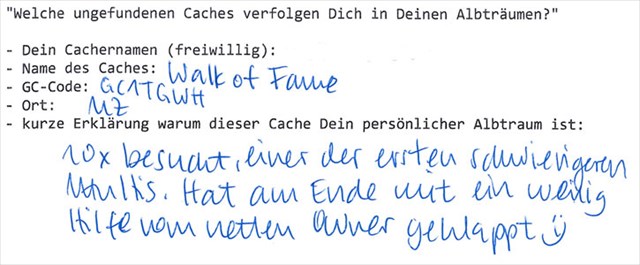 "Welche ungefundenen Caches verfolgen Dich in Deinen Albträumen?"
- Dein Cachernamen (freiwillig):
- Name des Caches: Walk of Fame
- GC-Code: GC1TGWH
- Ort: MZ
- kurze Erklärung warum dieser Cache Dein persönlicher Albtraum ist:
10x besucht, einer der ersten schwierigeren
Multis. Hat am Ende mit ein wenig
Hilfe vom netten Owner geklappt ☺